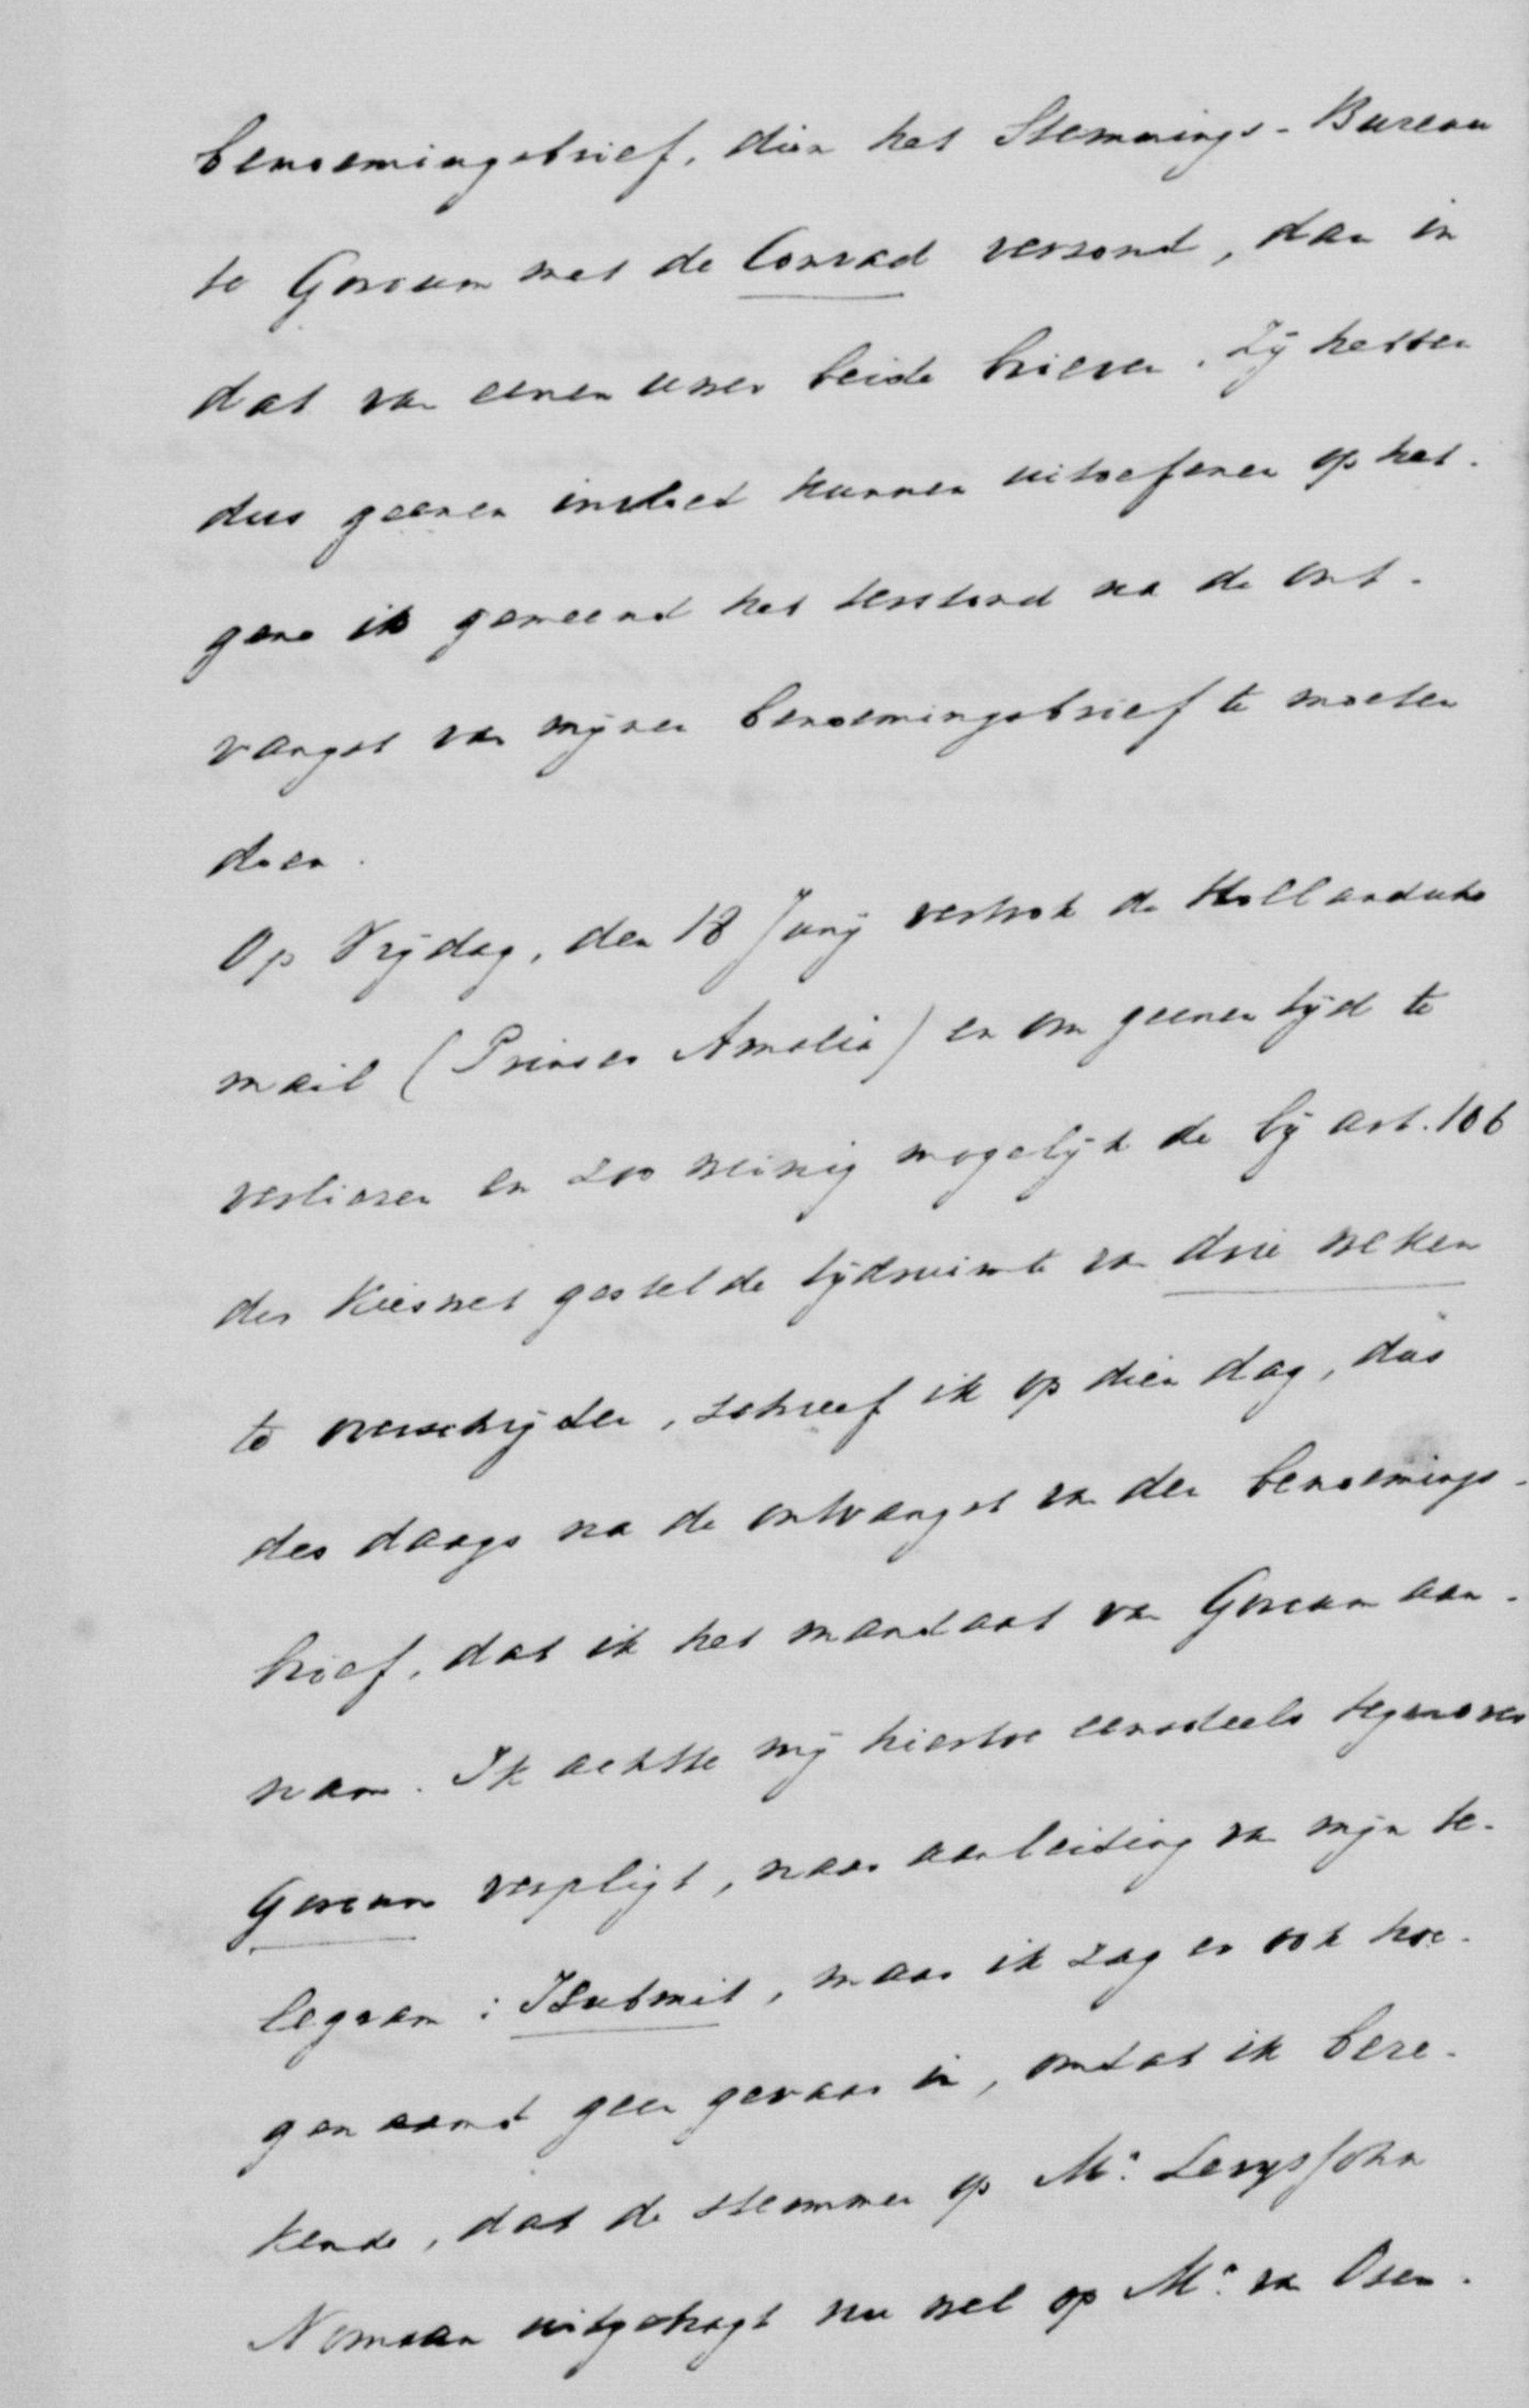 benoemingsbrief, dien het Stemmings-Bureau
te Gorcum met de Conrad verzond, dan in
dat van eenen uwer beide brieven. Zij hebben
dus geenen invloed kunnen uitoefenen op het-
gene ik gemeend heb terstond na de ont-
vangst van mijnen benoemingsbrief te moeten
doen.
Op Vrijdag, den 18 Junij vertrok de Hollandsche
mail (Prinses Amalia) en om geenen tijd te
verliezen en zoo weinig mogelijk de bij art. 106
der Kieswet gestelde tijdruimte van drie weken
te overschrijden, schreef ik op dien dag, dus
des daags na de ontvangst van den benoemings-
brief, dat ik het mandaat van Gorcum aan-
nam. Ik achtte mij hiertoe eensdeels tegenover
Gorcum verpligt, naar aanleiding van mijn te-
legram: I submit, maar ik zag er ook hoe-
genaamd geen gevaar in, omdat ik bere-
kende, dat de stemmen op Mr. Levyssohn
Norman uitgebragt nu wel op Mr. van Osen-